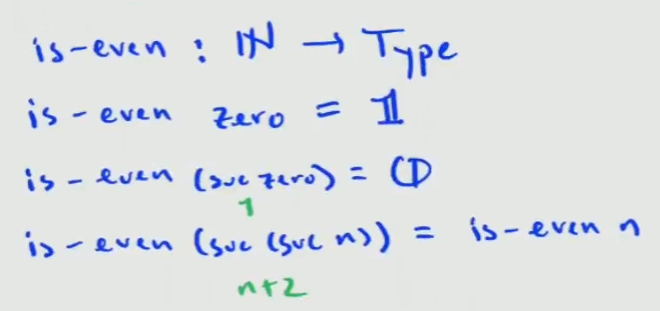 is-even : ℕ → Type
is-even zero = 𝟙
is-even (suc zero) = 𝟘
1
is-even (suc (suc n)) = is-even n
n+2